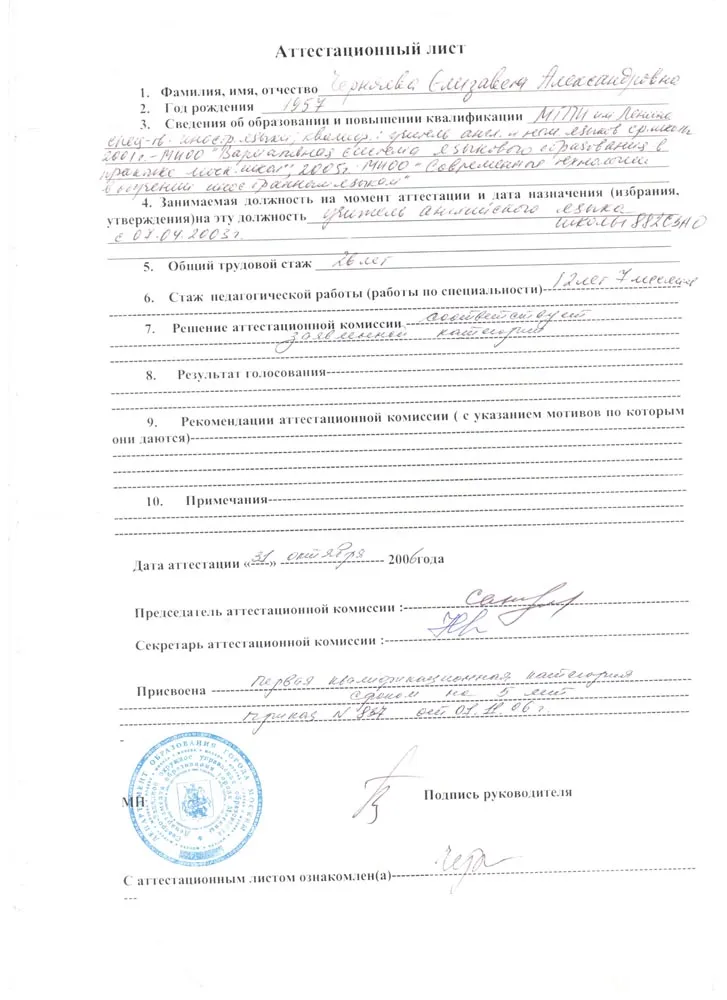 Аттестационный лист
1. Фамилия, имя, отчество Черняева Елизавета Александровна
2. Год рождения 1957
3. Сведения об образовании и повышении квалификации МГПИ им Ленина
спец-ть - иностр. языки, квалиф.: учитель англ. и нем языков ср. школы
2001г. - МИОО "Вариативная система языкового образования в
практике моск. школ", 2005г. МИОО - "Современные технологии
в обучении иностранным языкам"
4. Занимаемая должность на момент аттестации и дата назначения (избрания,
утверждения)на эту должность учитель английского языка
с 01.04.2003г. школы 882 СЗАО
5. Общий трудовой стаж 26 лет
6. Стаж педагогической работы (работы по специальности)- 12 лет 7 месяцев
7. Решение аттестационной комиссии соответствует
заявленной категории
8. Результат голосования
9. Рекомендации аттестационной комиссии ( с указанием мотивов по которым
они даются)
10. Примечания
Дата аттестации «31» октября 2006года
Председатель аттестационной комиссии :
Секретарь аттестационной комиссии :
Присвоена первая квалификационная категория
сроком на 5 лет
приказ N 837 от 01.11.06г.
ДЕПАРТАМЕНТ ОБРАЗОВАНИЯ ГОРОДА МОСКВЫ
МП Подпись руководителя
С аттестационным листом ознакомлен(а)